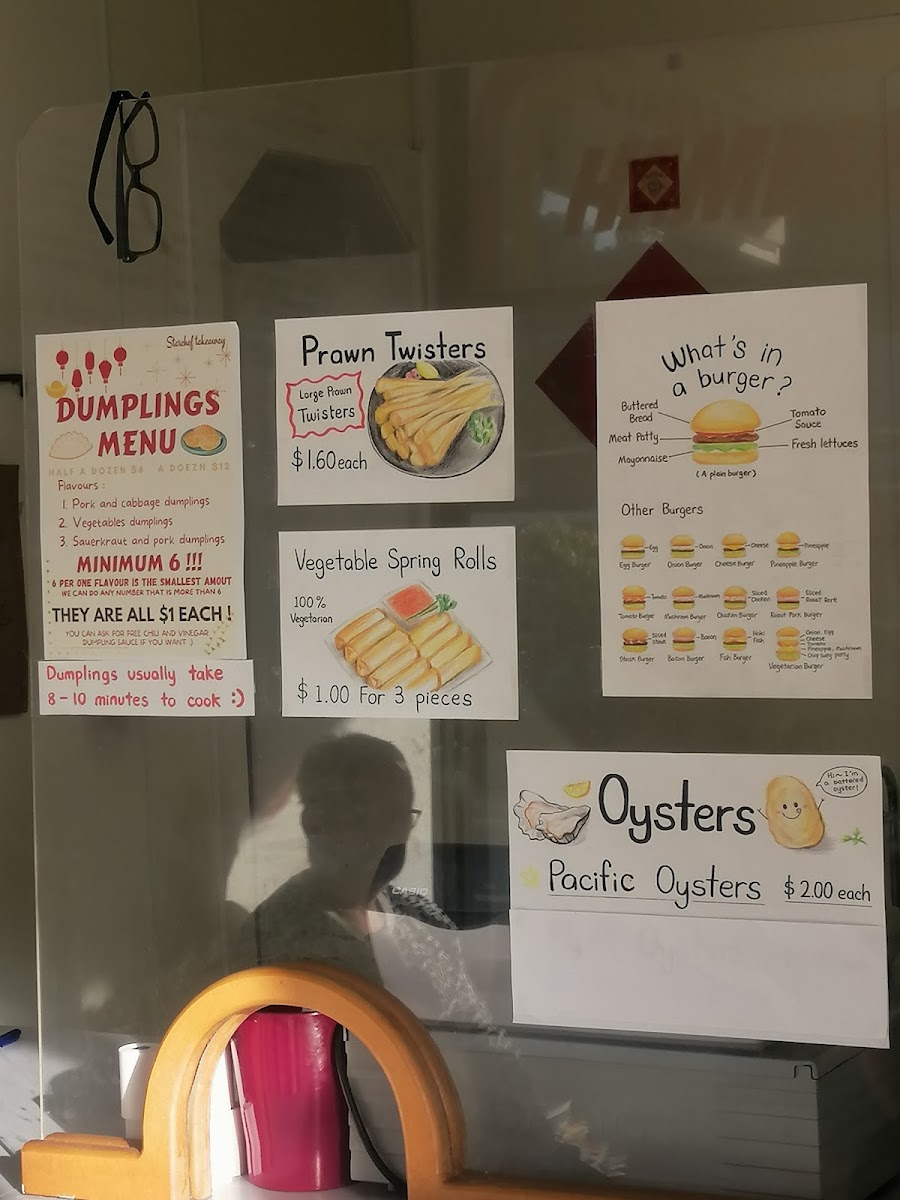 Starchef takeaway
DUMPLINGS
MENU
HALF A DOZEN $6 A DOEZN $12
Flavours :
1. Pork and cabbage dumplings
2. Vegetables dumplings
3. Sauerkraut and pork dumplings
MINIMUM 6 !!!
6 PER ONE FLAVOUR IS THE SMALLEST AMOUT
WE CAN DO ANY NUMBER THAT IS MORE THAN 6
THEY ARE ALL $1 EACH !
YOU CAN ASK FOR FREE CHILI AND VINEGAR
DUMPLING SAUCE IF YOU WANT :)
Dumplings usually take
8-10 minutes to cook :)
Prawn Twisters
Large Prawn
Twisters
$1.60 each
Vegetable Spring Rolls
100%
Vegetarian
$1.00 For 3 pieces
What's in
a burger?
Buttered
Bread
Meat Patty
Mayonnaise
Tomato
Sauce
Fresh lettuces
(A plain burger)
Other Burgers
Egg
Onion
Cheese
Pineapple
Egg Burger
Onion Burger
Cheese Burger
Pineapple Burger
Tomato
Mushroom
Sliced
Chicken
Sliced
Roast Pork
Tomato Burger
Mushroom Burger
Chicken Burger
Roast Pork Burger
Sliced
Steak
Bacon
Hoki
Fish
Onion, Egg
Cheese
Tomato
Pineapple, Mushroom
Chop Suey patty
Steak Burger
Bacon Burger
Fish Burger
Vegetarian Burger
Oysters
Hi~ I'm
a battered
oyster!
Pacific Oysters $2.00 each
CASIO